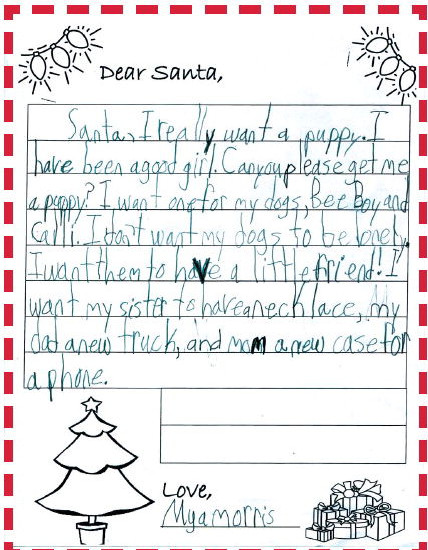 Dear Santa,
Santa, I really want a puppy. I
have been a good girl. Can you please get me
a puppy? I want one for my dogs, Bee Boy and
Calli. I don't want my dogs to be lonely.
I want them to have a little friend! I
want my sister to have a necklace, my
dad a new truck, and mom a new case for
a phone.
Love,
Mya morris